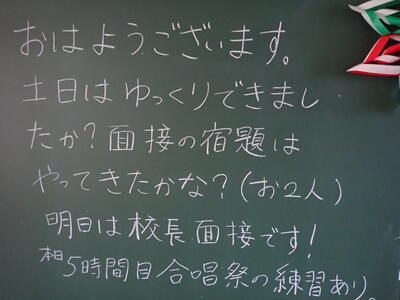 おはようございます。
土日はゆっくりできまし
たか？面接の宿題は
やってきたかな？(お2人)
明日は校長面接です！
本日5時間目合唱祭の練習あり。